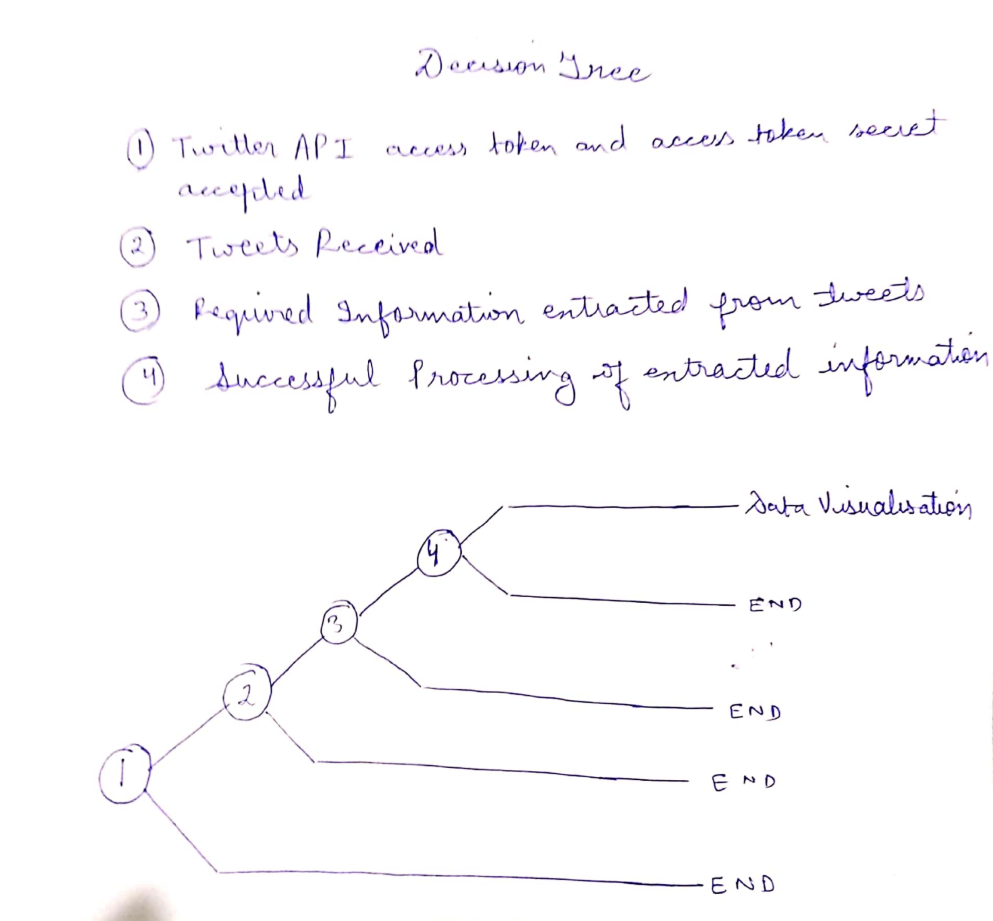 Decision Tree
① Twitter API access token and access token secret
accepted
② Tweets Received
③ Required Information extracted from tweets
④ Successful Processing of extracted information
Data Visualisation
4
END
3
END
2
END
1
END